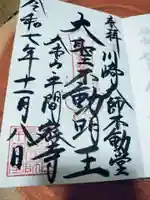 奉拝
川崎大師不動堂
大聖不動明王
大本山平間教寺
令和七年十一月八日